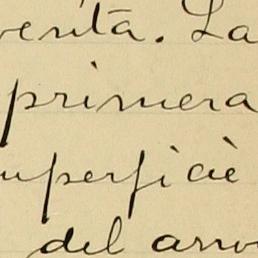 venta. La
primera
uperficiè
del arro